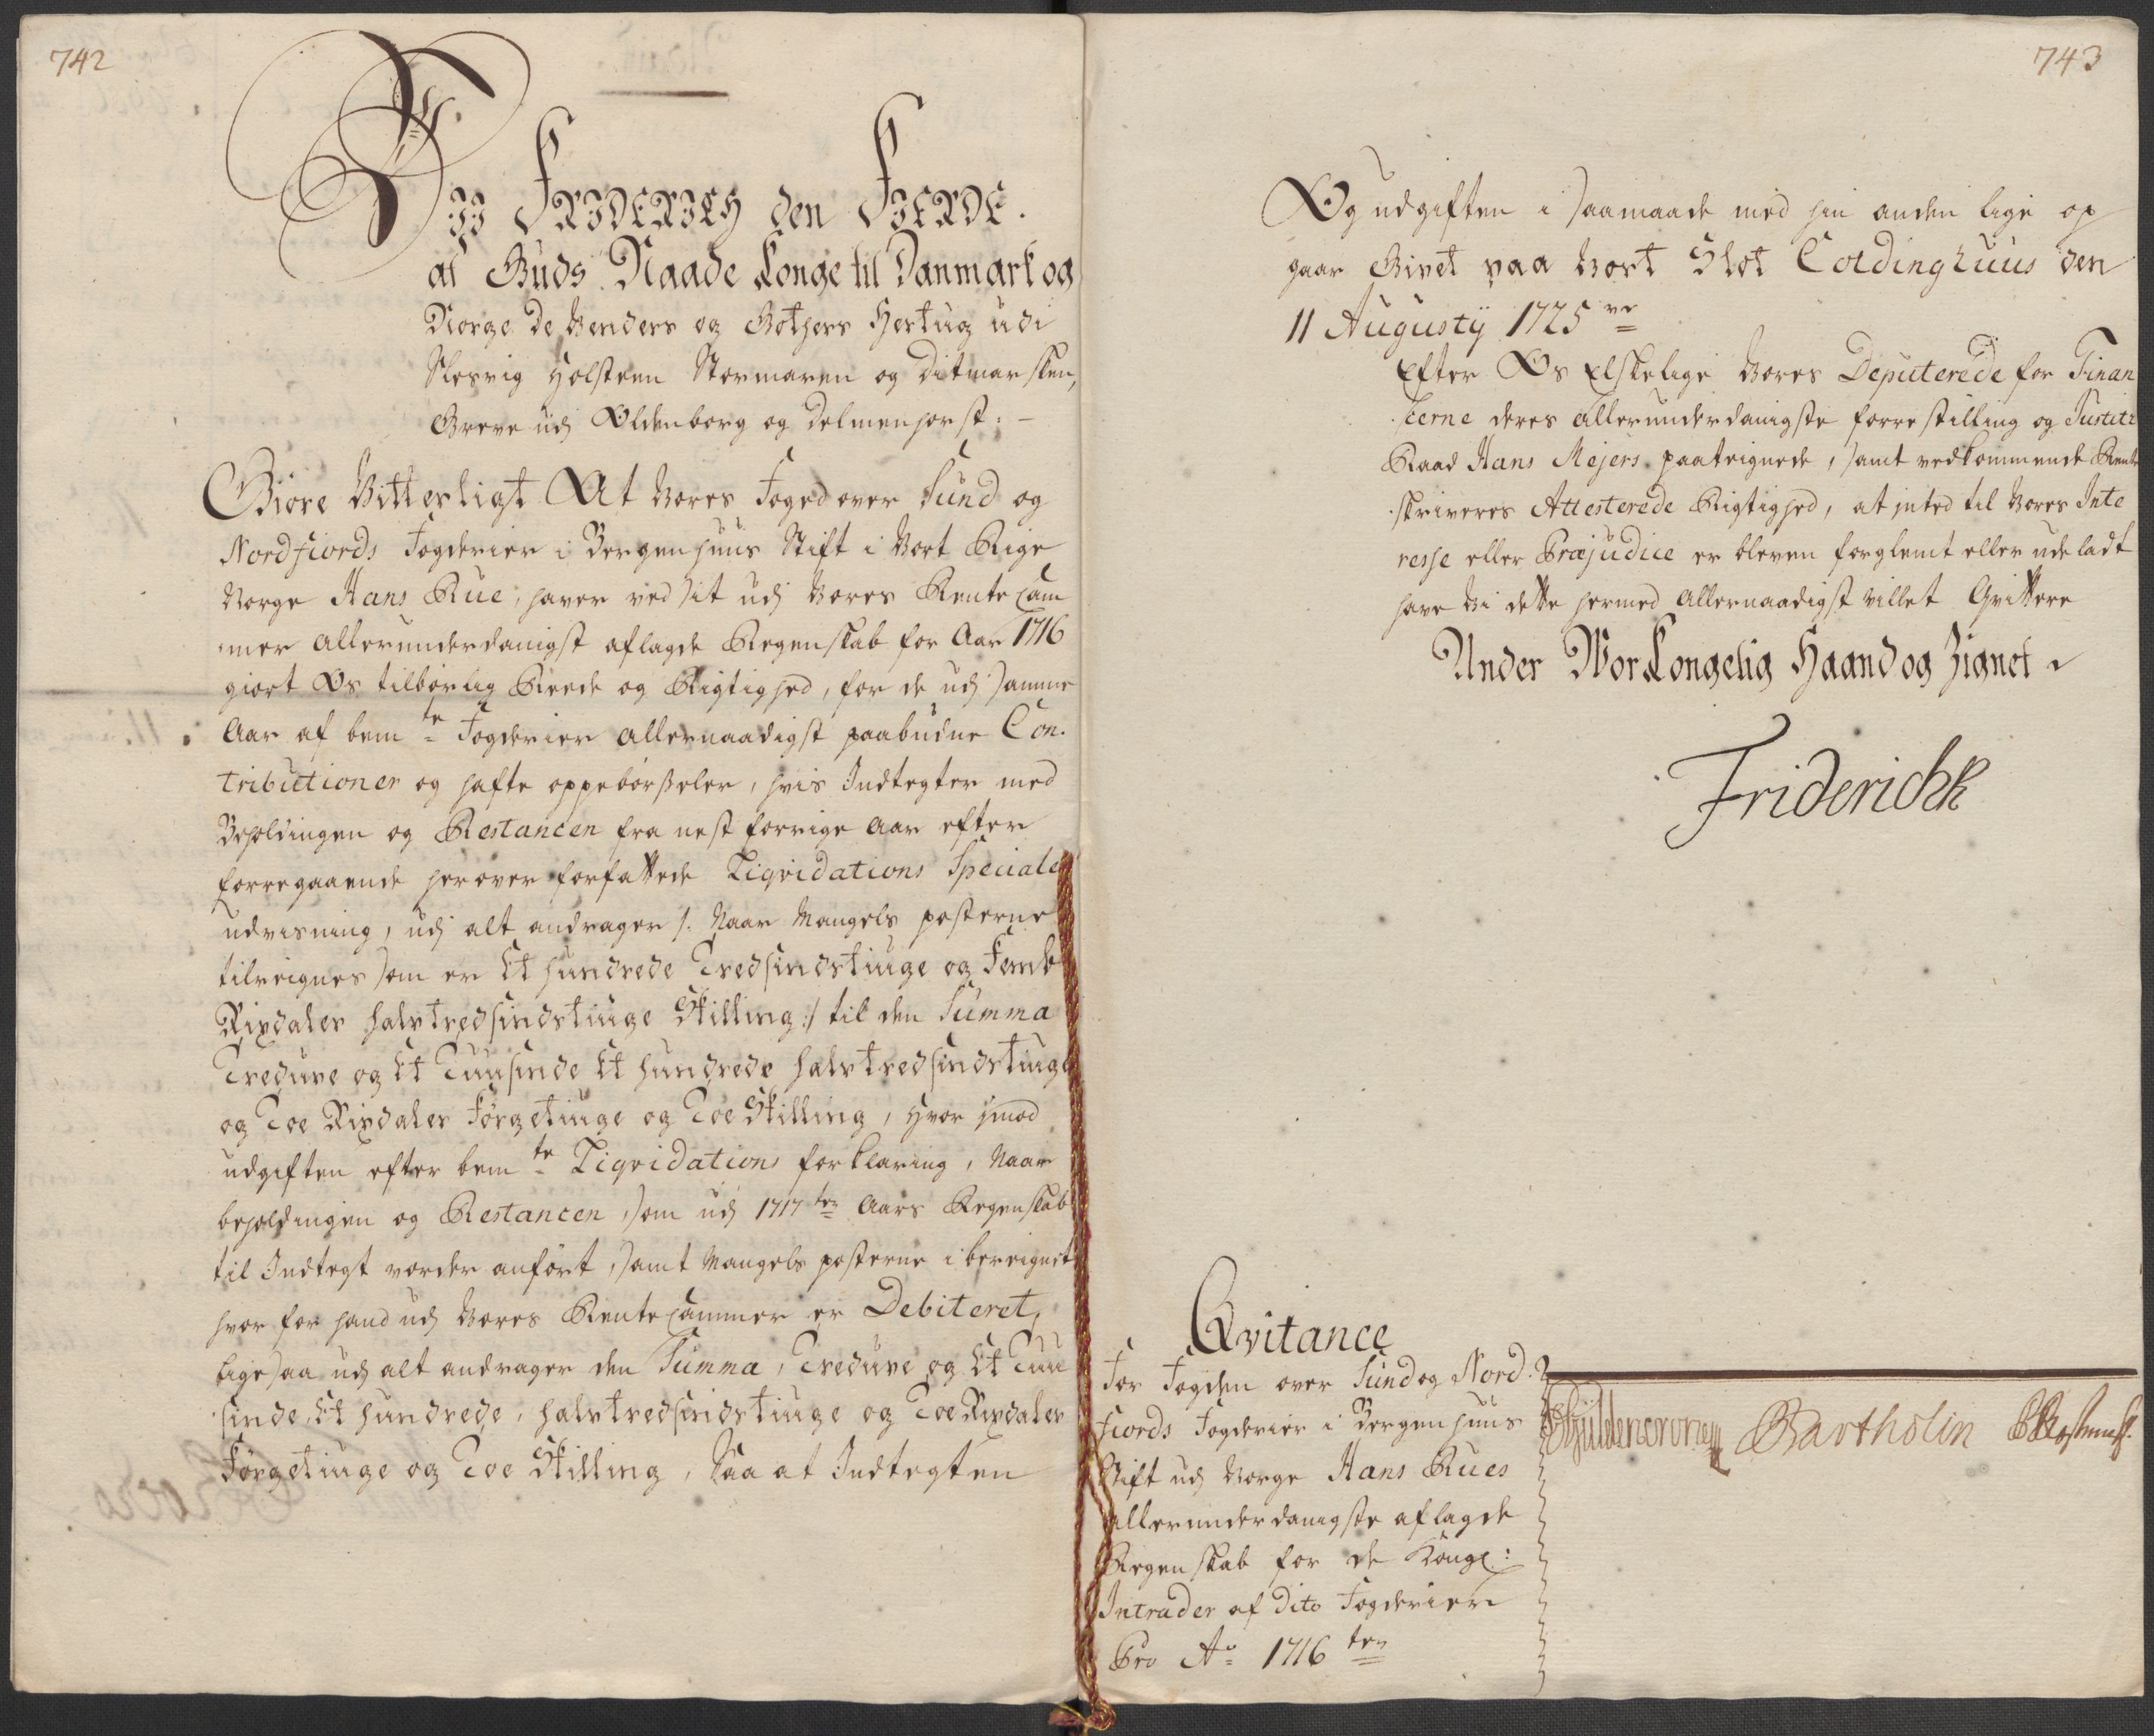 742
Wii FRIDERICH den FIERDE.
af Guds Naade Konge til Danmark og
Norge De Venders og Gothers Hertug udi
Slesvig Holsteen Stormaren og Ditmarsken,
Greve udj Oldenborg og Delmenhorst: –
Giøre Vitterligt At Vores Foged over Sund og
Nordfiords Fogderier i Bergenhuus Stift i Vort Rige
Norge Hans Rue, haver ved sit udj Vores Rente Cam
mer allerunderdanigst aflagde Regenskab for Aar 1716
giort Os tilbørlig Reede og Rigtighed, for de udj samme
Aar af bem.te Fogderier allernaadigst paabudne Con-
tributioner og hafte oppebørßeler, hvis Indtegter med
Beholdingen og Restancen fra nest forrige Aar efter
forregaaende herover forfattede Liqvidations Speciale
udvisning, udj alt andrager /: Naar Mangels posterne
tilreignes som er Et hundrede Tredsindstiuge og Femb
Rixdaler halvtredsindstiuge Skilling :/ til den Summa
Treduve og Et Tuusinde Et hundrede halvtredsindstiuge
og Toe Rixdaler Førgetiuge og Toe Skilling, Hvor imod
udgiften efter bem.te Liqvidations forklaring, Naar
beholdingen og Restancen, som udj 1717.ten Aars Regenskab
til Indtegt vorder anført, samt Mangels posterne i bereignet
hvor for hand udj Vores Rente Cammer er Debiteret,
lige saa udj alt andrager den Summa, Treduve og Et Tuu
sinde, Et hundrede, halvtredsindstiuge og Toe Rixdaler
Førgetiuge og Toe Skilling, Saa at Indtegten
743
Og udgiften i saamaade med hin anden lige op
gaar Givet paa Vort Slot Coldinghuus den
11 Augustij 1725
Efter Os Elskelige Vores Deputerede for Finan
cerne deres allerunderdanigste forrestilling og Justitz
Raad Hans Mejers paateignede, samt vedkommende Rente
skriveres Attesterede Rigtighed, at inted til Vores Inte
resse eller Præjudice er bleven forglemt eller udeladt
have Vi dette hermed Allernaadigst villet Qvittere
Under Vor Kongelig Haand og Zignet
Friderich R
Qvitance
For Fogden over Sund og Nord-
fiords Fogderier i Bergenhuus
Stift udj Norge Hans Rues
allerunderdanigste aflagde
Regenskab for de Kongl:
Intrader af dito Fogderier
Pro A.o 1716.ten
Gyldencrone Bartholin